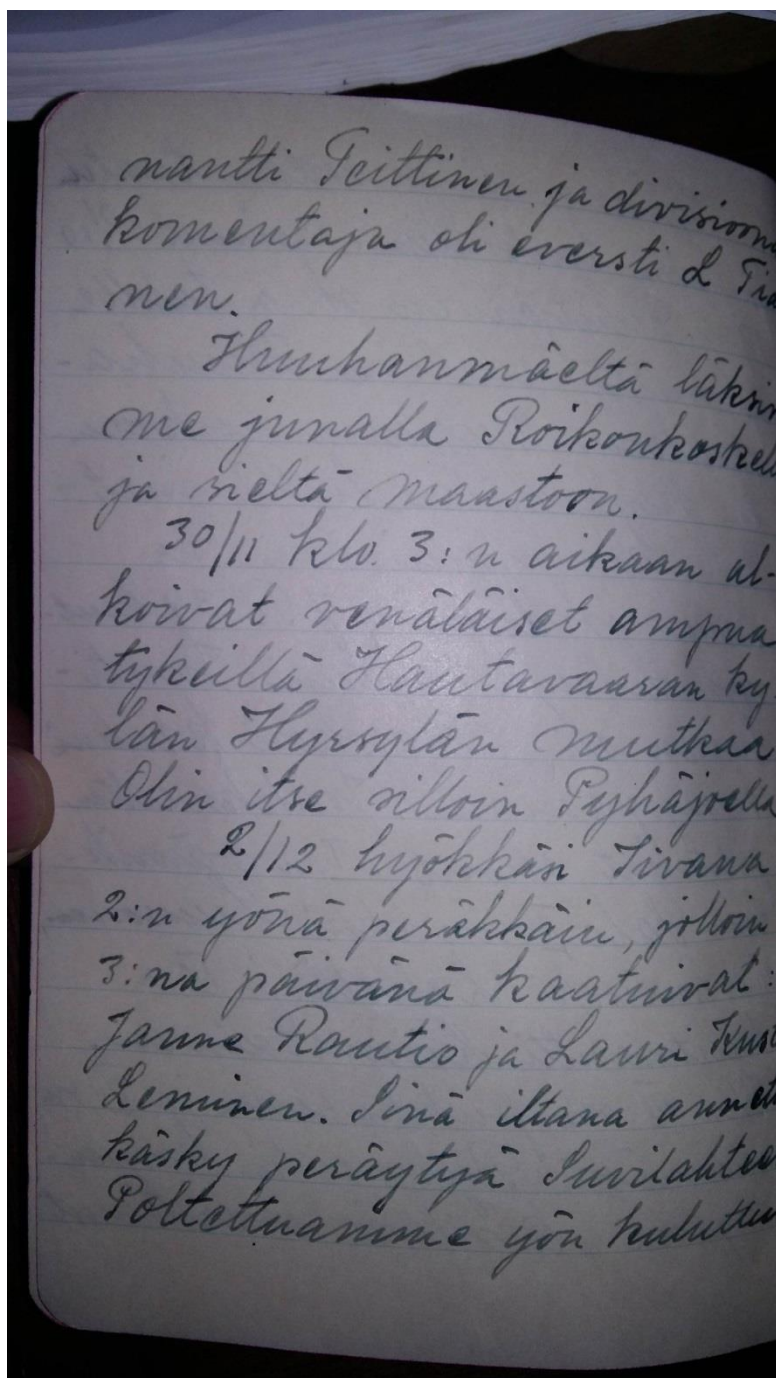 nantti Teittinen ja divisioona
komentaja oli eversti L Tia
nen.
Huuhanmäeltä läksim
me junalla Roikonkoskell
ja sieltä maastoon.
30/11 klo. 3:n aikaan al-
koivat venäläiset ampua
tykeillä Hautavaaran ky
län Hyrsylän mutkaa
Olin itse silloin Pyhäjoella
2/12 hyökkäsi Iivana
2:n yönä peräkkäin, jolloin
3:na päivänä kaatuivat:
Janne Rautio ja Lauri
Leminen. Sinä iltana annet
käsky peräytyä Suvilahtee
Poltettuamme yön kuluttu